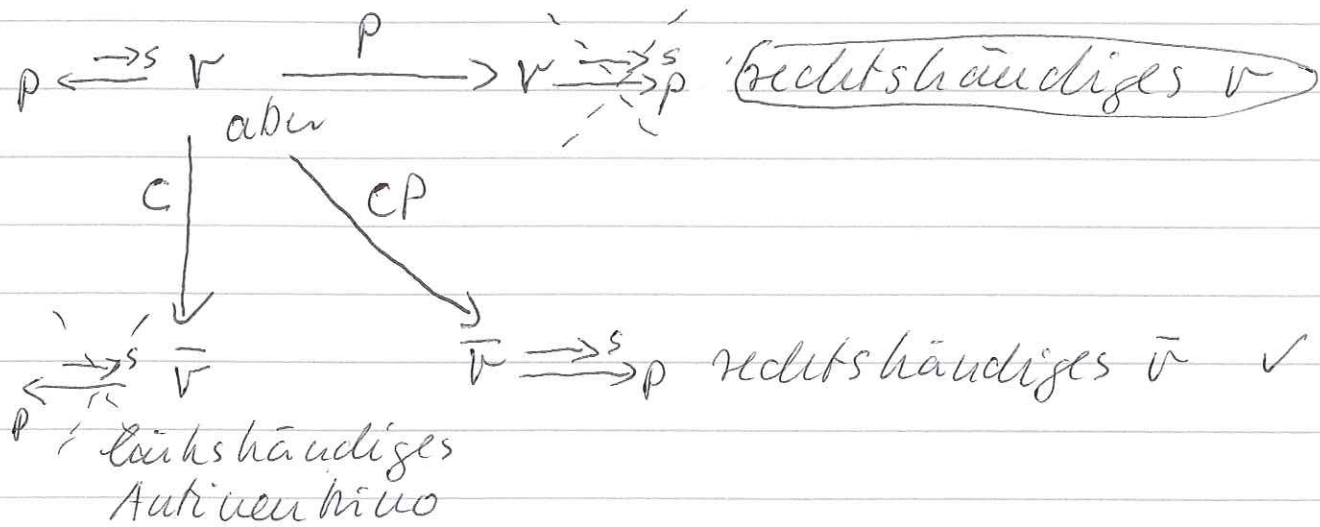 P
p ⟵ →s ν ⟶ ν →s ⟶p rechtshändiges ν
aber
C CP
→s ν̄ ν̄ →s ⟶p rechtshändiges ν̄ ✓
p linkshändiges
Antineutrino